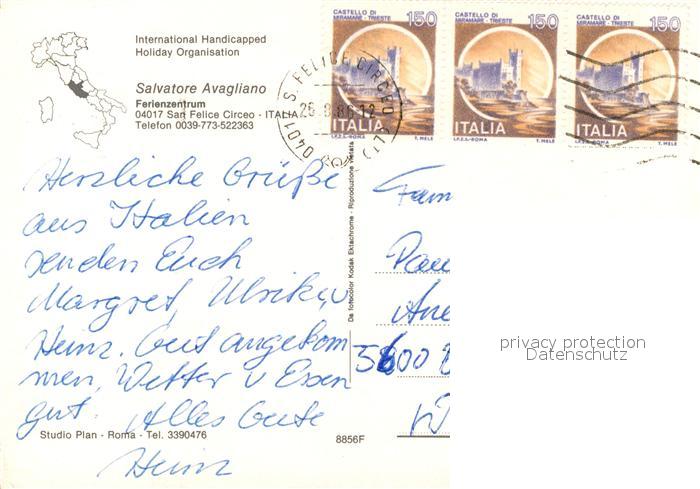 International Handicapped
Holiday Organisation
Salvatore Avagliano
Ferienzentrum
04017 San Felice Circeo - ITALIA
Telefon 0039-773-522363
CASTELLO DI
MIRAMARE - TRIESTE 150
ITALIA
I.P.Z.S.-ROMA T. MELE
CASTELLO DI
MIRAMARE - TRIESTE 150
ITALIA
I.P.Z.S.-ROMA T. MELE
CASTELLO DI
MIRAMARE - TRIESTE 150
ITALIA
I.P.Z.S.-ROMA T. MELE
S. FELICE CIRCEO
Herzliche Grüße
aus Italien
senden Euch
Margret, Ulrike, u
Heinz. Gut angekom
men, Wetter u Essen
gut. Alles Gute
Heinz
Da fotocolor Kodak Ektachrome - Riproduzione vietata
Fam
5600
privacy protection
Datenschutz
Studio Plan - Roma - Tel. 3390476
8856F